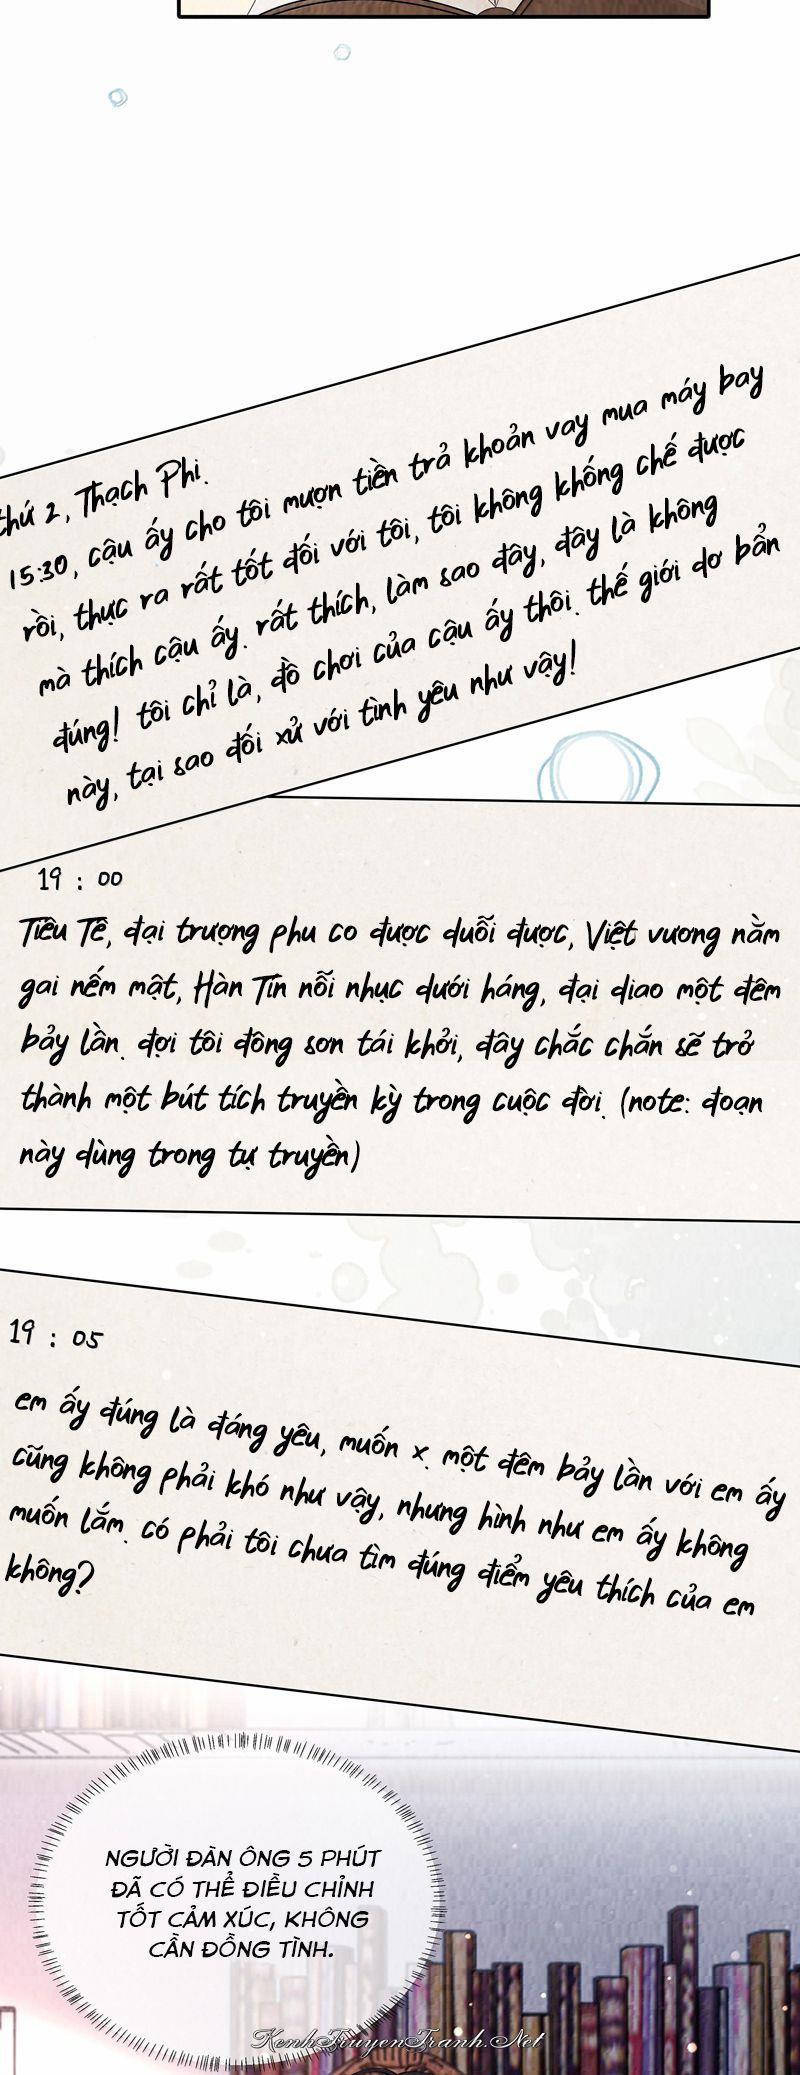 thứ 2, Thạch Phi.
15:30, cậu ấy cho tôi mượn tiền trả khoản vay mua máy bay
rồi, thực ra rất tốt đối với tôi, tôi không khống chế được
mà thích cậu ấy. rất thích, làm sao đây, đây là không
đúng! tôi chỉ là, đồ chơi của cậu ấy thôi. thế giới dơ bẩn
này, tại sao đối xử với tình yêu như vậy!
19 : 00
Tiêu Tề, đại trượng phu co được duỗi được, Việt vương nằm
gai nếm mật, Hàn Tín nỗi nhục dưới háng, đại diao một đêm
bảy lần. đợi tôi đông sơn tái khởi, đây chắc chắn sẽ trở
thành một bút tích truyền kỳ trong cuộc đời. (note: đoạn
này dùng trong tự truyền)
19 : 05
em ấy đúng là đáng yêu, muốn x. một đêm bảy lần với em ấy
cũng không phải khó như vậy, nhưng hình như em ấy không
muốn lắm. có phải tôi chưa tìm đúng điểm yêu thích của em
không?
NGƯỜI ĐÀN ÔNG 5 PHÚT
ĐÃ CÓ THỂ ĐIỀU CHỈNH
TỐT CẢM XÚC, KHÔNG
CẦN ĐỒNG TÌNH.
KenhTruyenTranh.Net